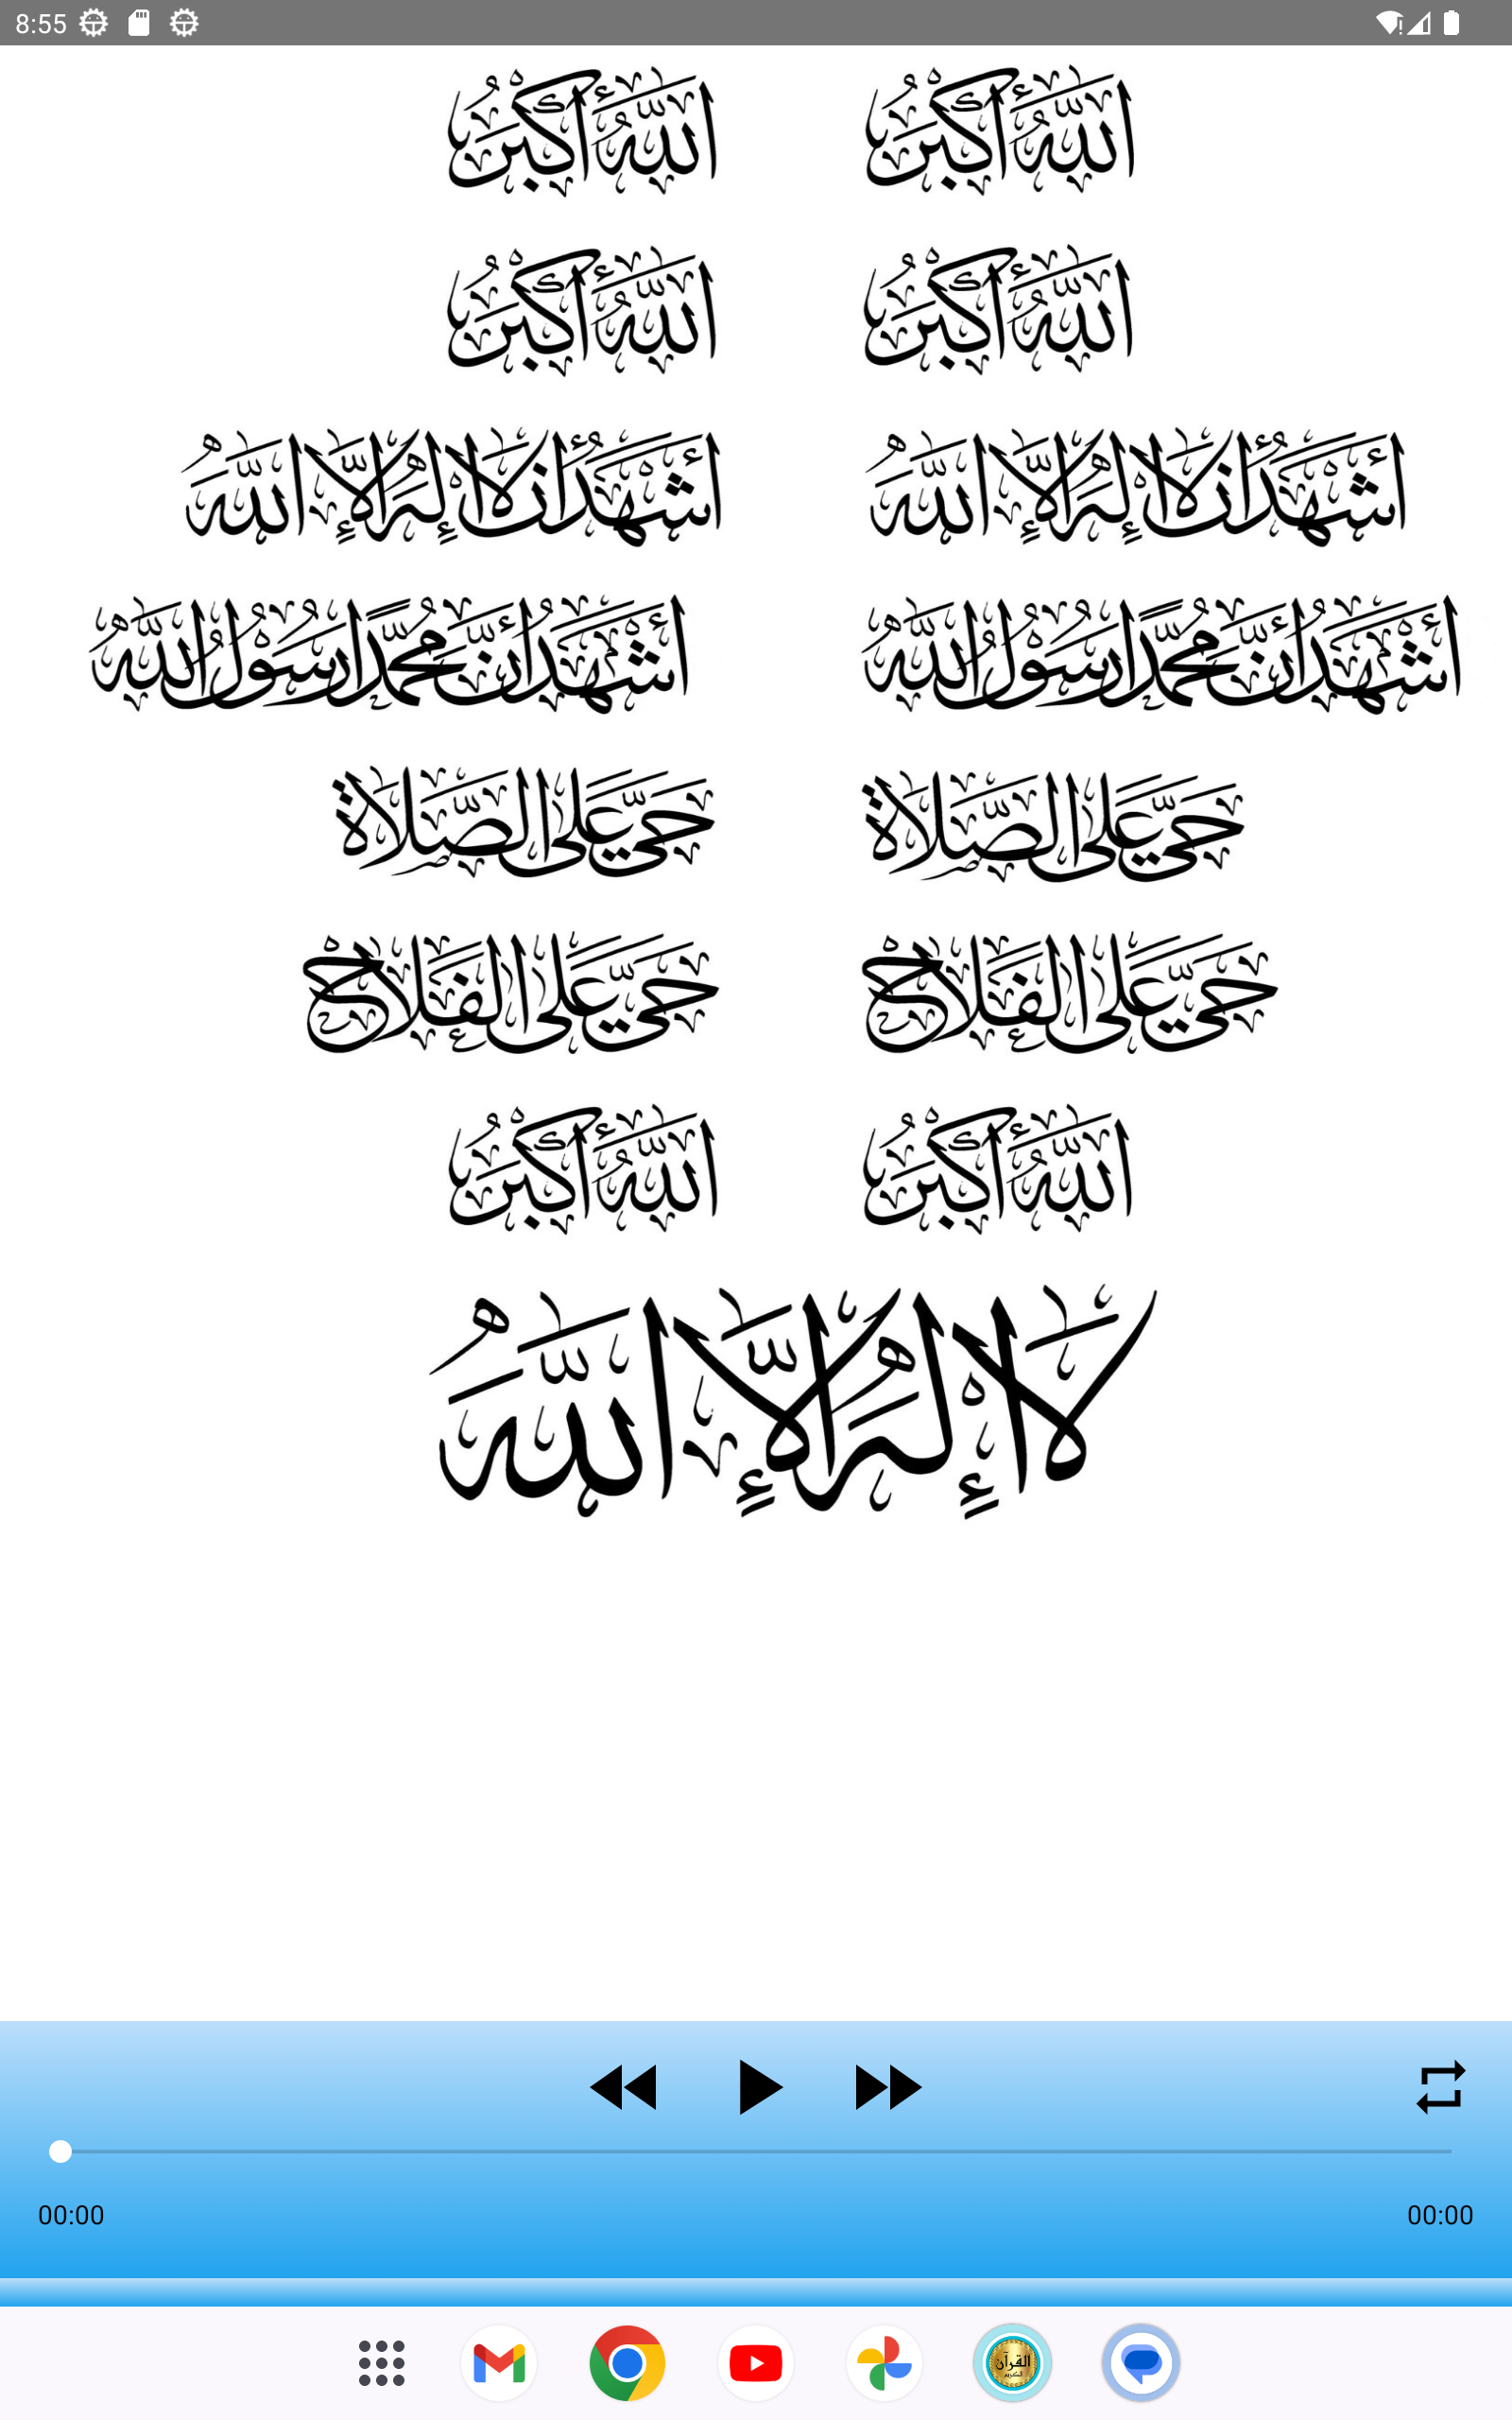 8:55
اللَّهُ أَكْبَرُ اللَّهُ أَكْبَرُ
اللَّهُ أَكْبَرُ اللَّهُ أَكْبَرُ
أَشْهَدُ أَنْ لَا إِلَهَ إِلَّا اللَّهُ أَشْهَدُ أَنْ لَا إِلَهَ إِلَّا اللَّهُ
أَشْهَدُ أَنَّ مُحَمَّدًا رَسُولُ اللَّهِ أَشْهَدُ أَنَّ مُحَمَّدًا رَسُولُ اللَّهِ
حَيَّ عَلَى الصَّلَاةِ حَيَّ عَلَى الصَّلَاةِ
حَيَّ عَلَى الْفَلَاحِ حَيَّ عَلَى الْفَلَاحِ
اللَّهُ أَكْبَرُ اللَّهُ أَكْبَرُ
لَا إِلَهَ إِلَّا اللَّهُ
00:00 00:00
القرآن
الكريم